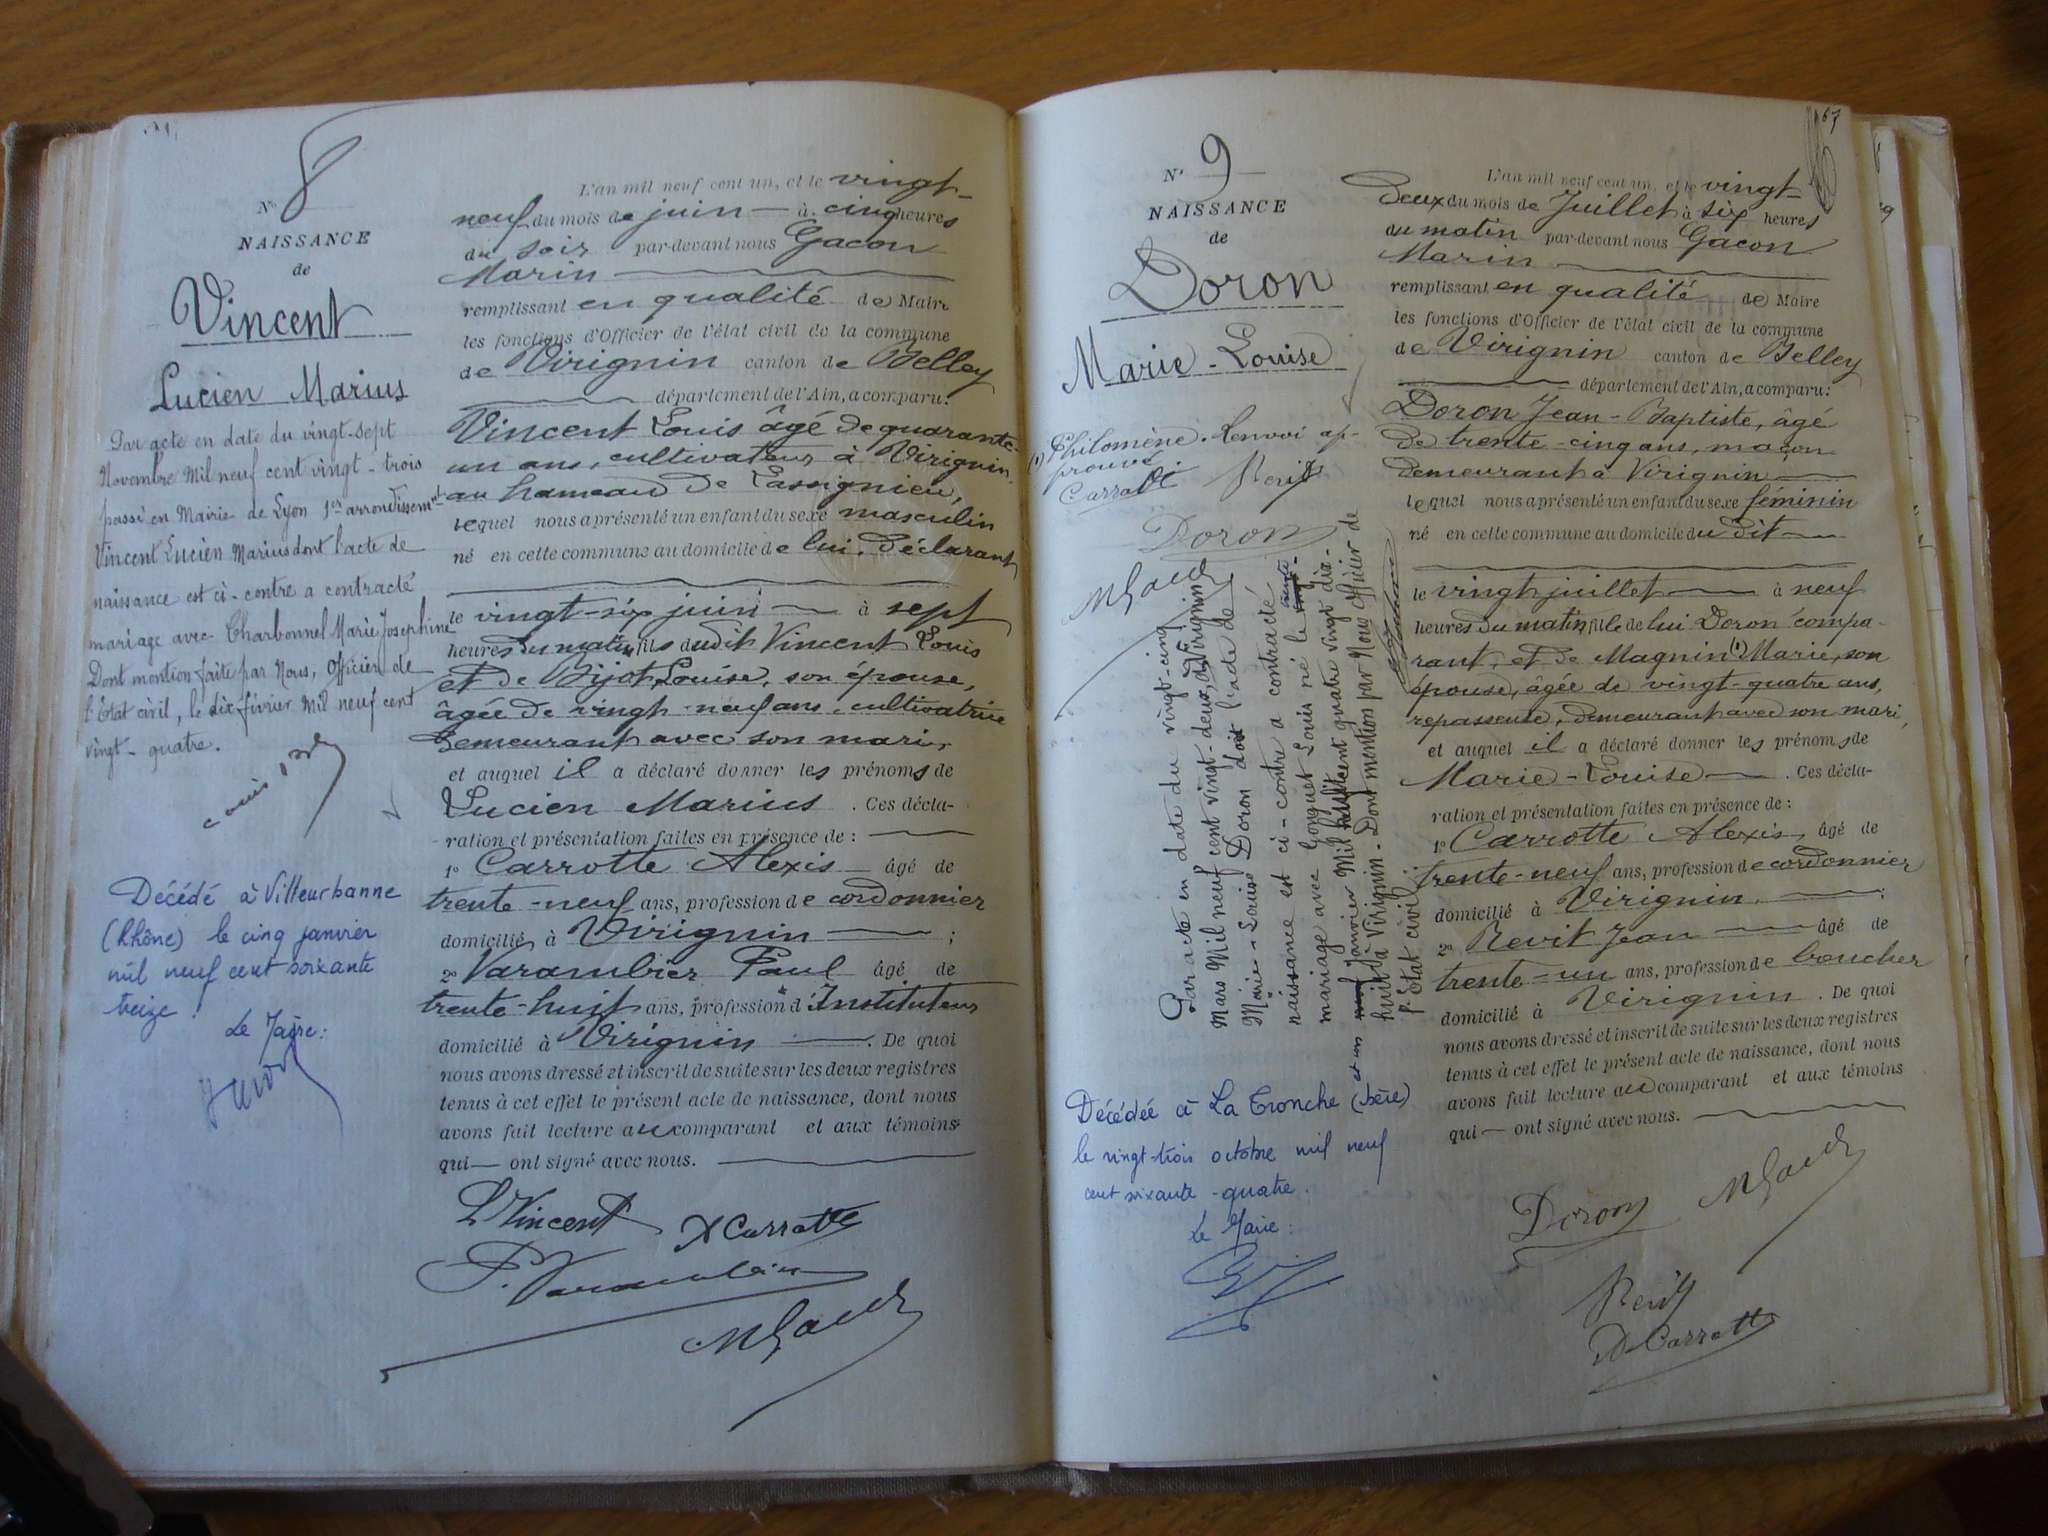 N° 8
NAISSANCE
de
Vincent
Lucien Marius
Par acte en date du vingt-sept
Novembre Mil neuf cent vingt-trois
passé en Mairie de Lyon 1er arrondissemnt
Vincent Lucien Marius dont l'acte de
naissance est ci-contre a contracté
mariage avec Charbonnel Marie Josephine
Dont mention faite par Nous, Officier de
l'Etat civil, le dix février Mil neuf cent
vingt-quatre.
Décédé à Villeurbanne
(Rhône) le cinq janvier
mil neuf cent soixante
treize.
Le Maire:
L'an mil neuf cent un, et le vingt-
neuf du mois de juin à cinq heures
du soir par-devant nous Gacon
Marin
remplissant en qualité de Maire
les fonctions d'Officier de l'état civil de la commune
de Virignin canton de Belley
département de l'Ain, a comparu:
Vincent Louis âgé de quarante-
un ans, cultivateur à Virignin
au hameau de Lassignieu,
lequel nous a présenté un enfant du sexe masculin
né en cette commune au domicile de lui, déclarant
le vingt-six juin à sept
heures du matin, fils dudit Vincent Louis
et de Bijot Louise, son épouse,
âgée de vingt-neuf ans, cultivatrice
demeurant avec son mari,
et auquel il a déclaré donner les prénoms de
Lucien Marius. Ces décla-
ration et présentation faites en présence de:
1° Carrotte Alexis âgé de
trente-neuf ans, profession de cordonnier
domicilié à Virignin;
2° Varambier Paul âgé de
trente-huit ans, profession d'Instituteur
domicilié à Virignin. De quoi
nous avons dressé et inscrit de suite sur les deux registres
tenus à cet effet le présent acte de naissance, dont nous
avons fait lecture au comparant et aux témoins
qui ont signé avec nous.
L Vincent A Carrotte
P. Varambier
M Gacon
67
N° 9
NAISSANCE
de
Doron
Marie-Louise
(1) Philomène. Renvoi ap-
prouvé.
Carrotte Revit
Doron
M Gacon
Par acte en date du vingt-cinq
Mars Mil neuf cent vingt-deux, à Virignin
Marie-Louise Doron dont l'acte de
naissance est ci-contre a contracté
mariage avec Longuet Louis né le trente
et un Janvier Mil huit cent quatre vingt dix-
huit à Virignin - Dont mention par Nous Officier de
l'Etat civil.
Décédée à La Tronche (Isère)
le vingt-trois octobre mil neuf
cent soixante-quatre.
Le Maire:
L'an mil neuf cent un, et le vingt-
deux du mois de Juillet à six heures
du matin par-devant nous Gacon
Marin
remplissant en qualité de Maire
les fonctions d'Officier de l'état civil de la commune
de Virignin canton de Belley
département de l'Ain, a comparu:
Doron Jean-Baptiste, âgé
de trente-cinq ans, maçon
demeurant à Virignin
lequel nous a présenté un enfant du sexe féminin
né en cette commune au domicile du dit
le vingt juillet à neuf
heures du matin, fille de lui Doron compa-
rant, et de Magnin (1) Marie, son
épouse, âgée de vingt-quatre ans,
repasseuse, demeurant avec son mari,
et auquel il a déclaré donner les prénoms de
Marie-Louise. Ces décla-
ration et présentation faites en présence de:
1° Carrotte Alexis, âgé de
trente-neuf ans, profession de cordonnier
domicilié à Virignin;
2° Revit Jean âgé de
trente-un ans, profession de boucher
domicilié à Virignin. De quoi
nous avons dressé et inscrit de suite sur les deux registres
tenus à cet effet le présent acte de naissance, dont nous
avons fait lecture au comparant et aux témoins
qui ont signé avec nous.
Doron M Gacon
Revit
A Carrotte